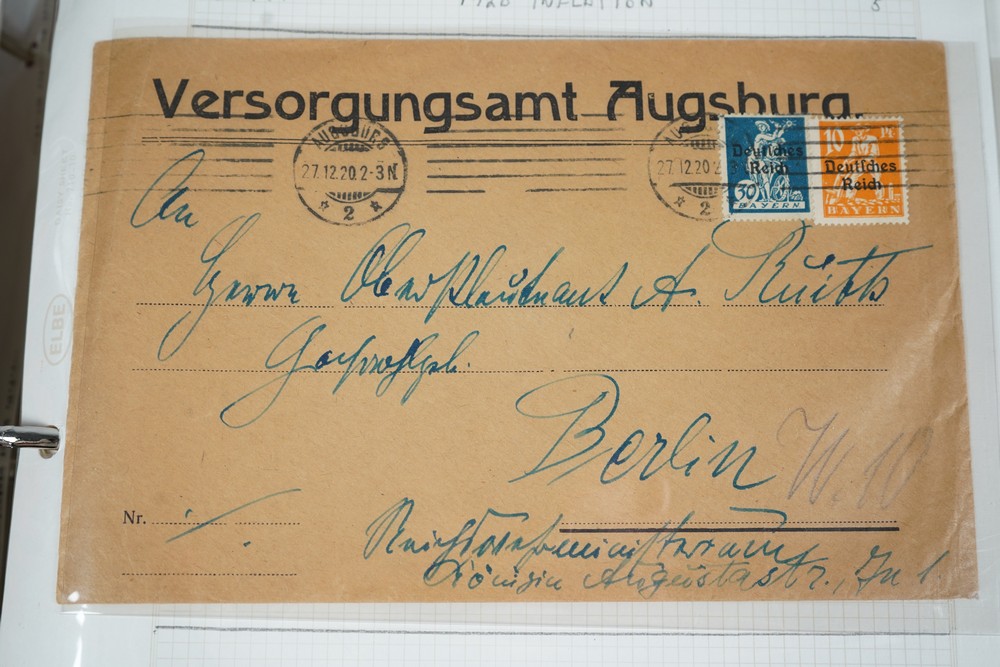 1920 INFLATION 5
Versorgungsamt Augsburg.
AUGSBURG
27.12.20.2-3N.
* 2 *
27.12.20.2
* 2
Deutsches
Reich
30
BAYERN
10 Pf
Deutsches
Reich
BAYERN
An
Herrn Oberstleutnant A. Ruith
Hochwohlgeb.
Berlin W. 10
Nr.
Reichswehrministerium
Königin Augustastr., In 1.
ELBE